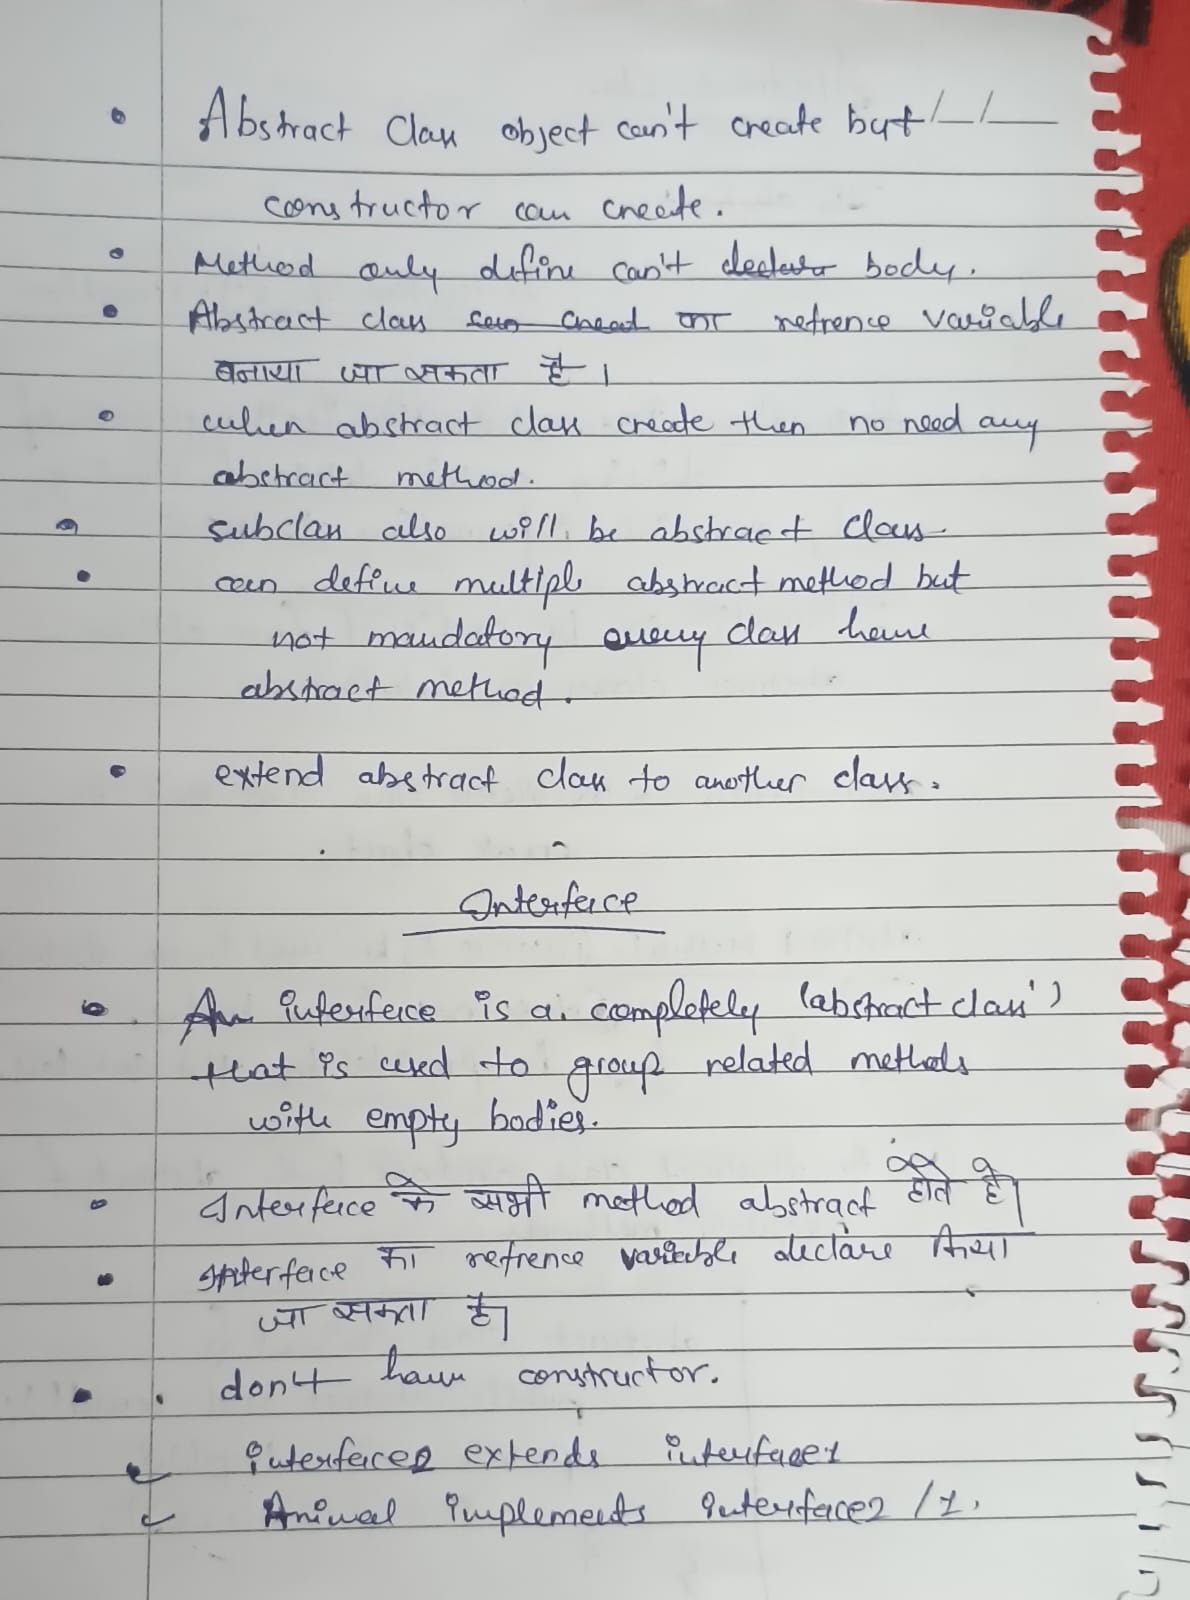 Abstract Class object can't create but
constructor can create.
Method only define can't declear body.
Abstract class can creat का refrence variable
बनाया जा सकता है।
when abstract class create then no need any
abstract method.
subclass also will be abstract class.
can define multiple abstract method but
not mandatory every class have
abstract method.
extend abstract class to another class.
Interface
An interface is a completely 'abstract class'
that is used to group related methods
with empty bodies.
Interface के सभी method abstract होते है।
Interface का refrence variable declare किया
जा सकता है।
don't have constructor.
interface2 extends interface1
Animal implements interface2 /1.